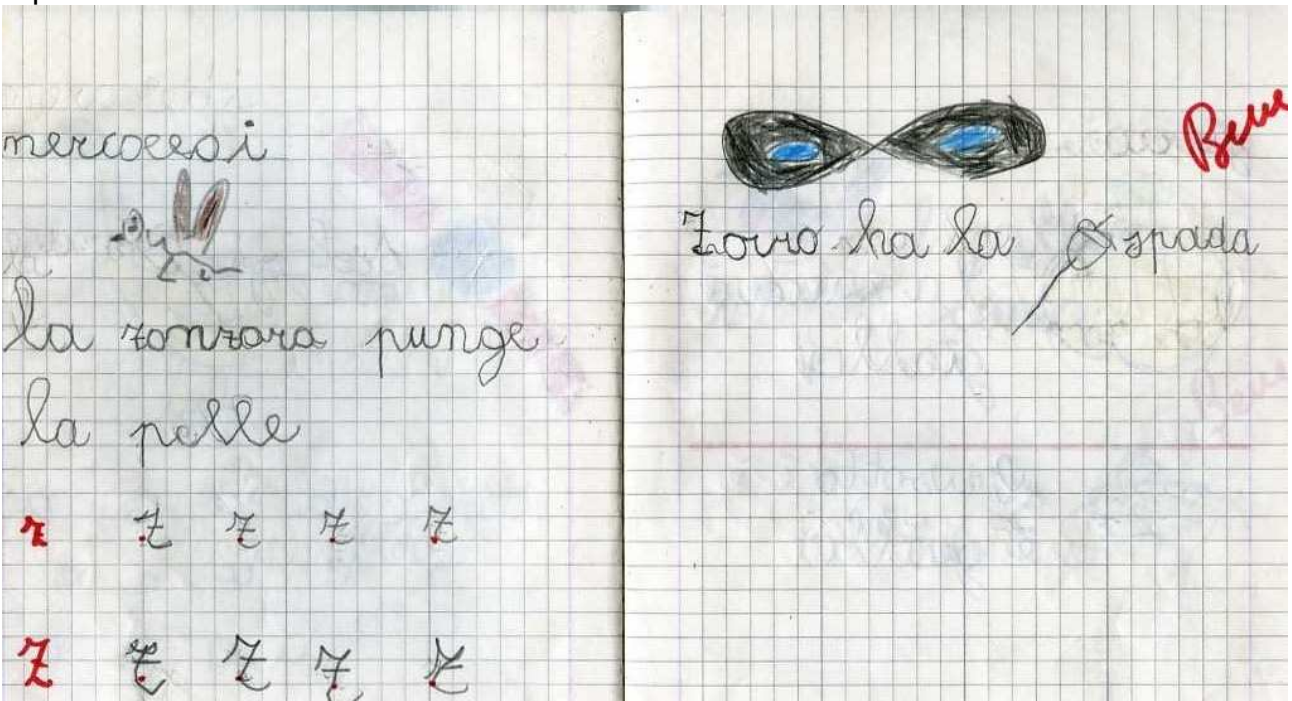 mercoledi
la zonzara punge
la pelle
z z z z z
Z Z Z Z Z
Bene
Zorro ha la spada